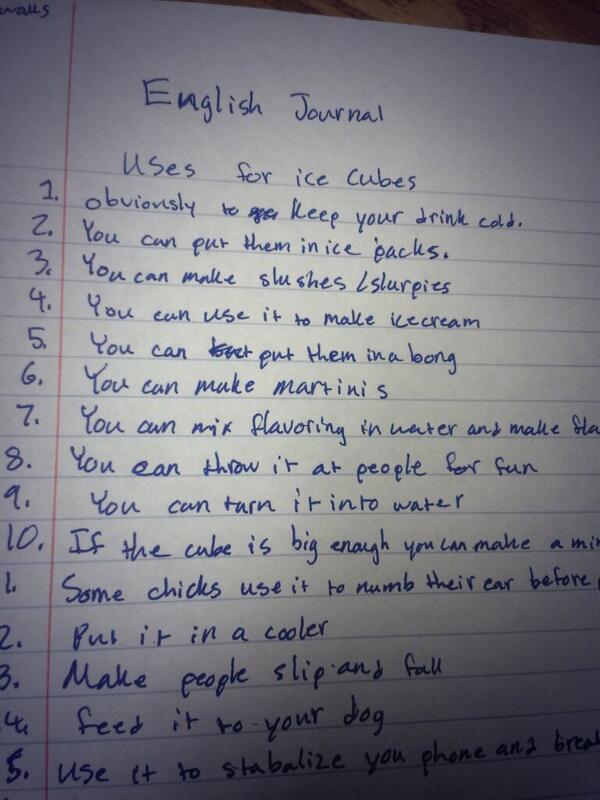 walls
English Journal
Uses for ice cubes
1. obviously to keep your drink cold.
2. You can put them in ice packs.
3. You can make slushes / slurpies
4. You can use it to make icecream
5. You can put them in a bong
6. You can make martinis
7. You can mix flavoring in water and make fla
8. You can throw it at people for fun
9. You can turn it into water
10. If the cube is big enough you can make a mi
1. Some chicks use it to numb their ear before
2. Put it in a cooler
3. Make people slip and fall
4. feed it to your dog
5. Use it to stabalize you phone and brea